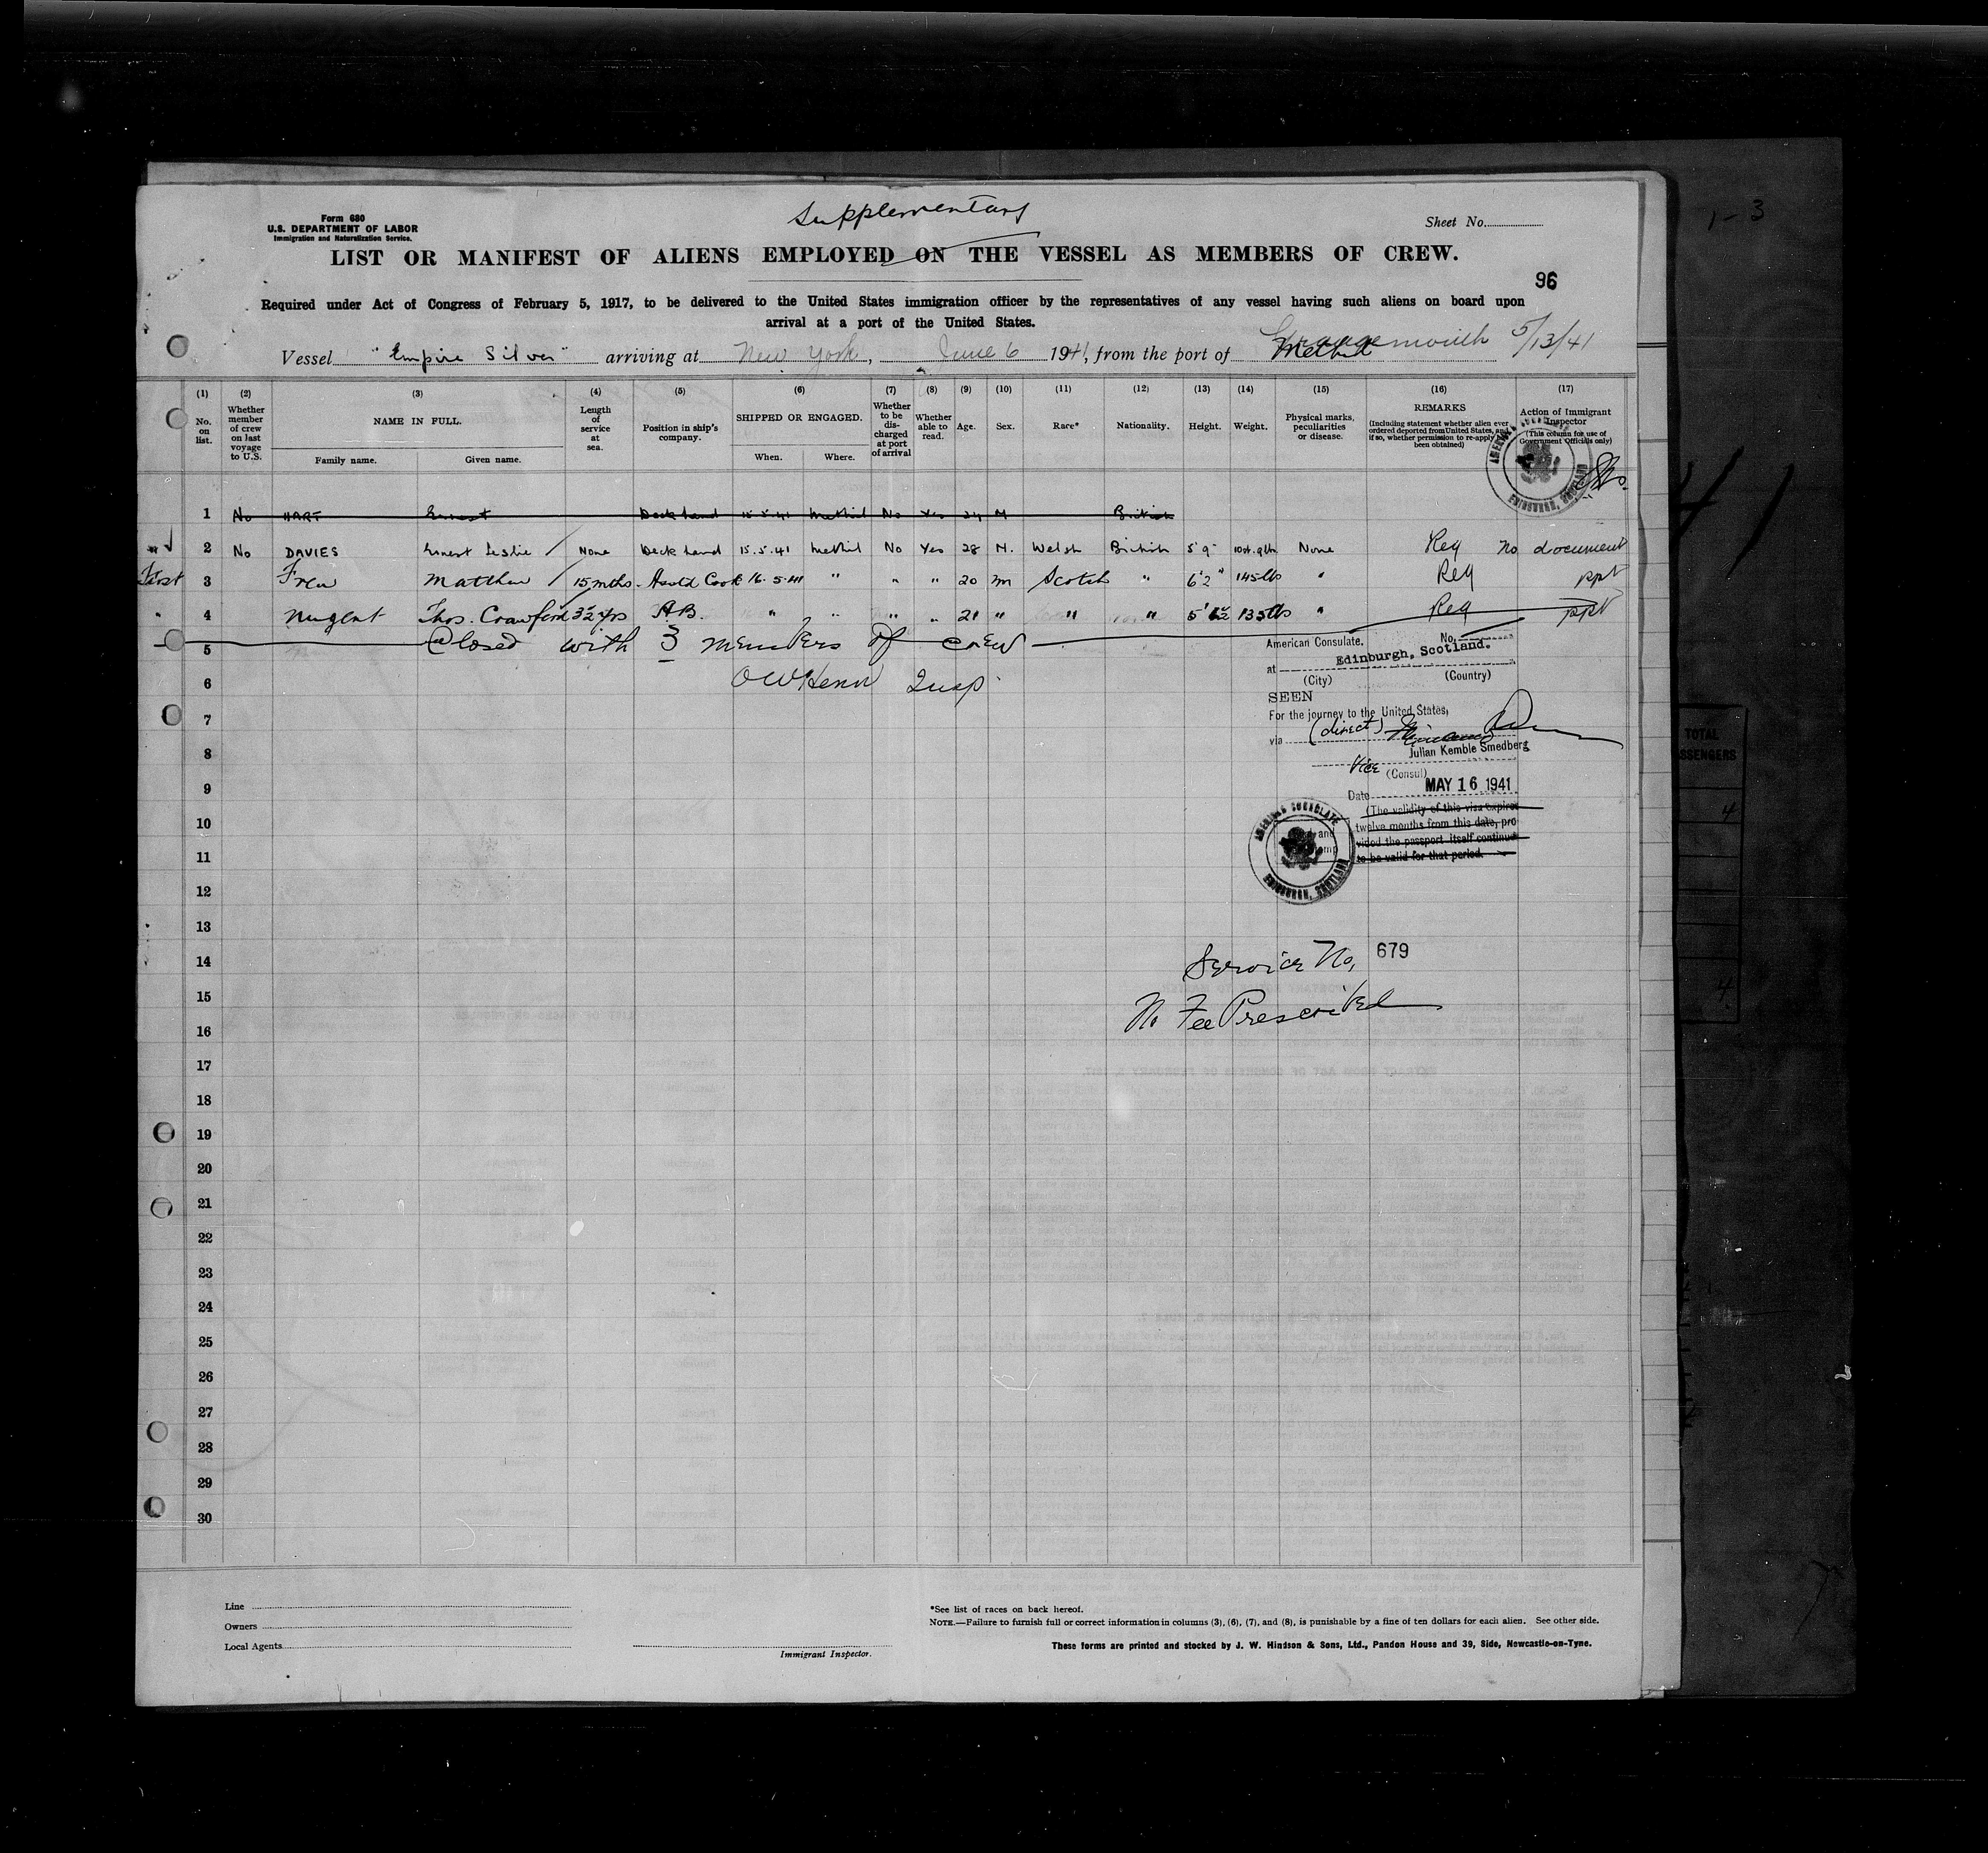 1-3
Supplementary
Form 680
U.S. DEPARTMENT OF LABOR
Immigration and Naturalization Service.
Sheet No.
LIST OR MANIFEST OF ALIENS EMPLOYED ON THE VESSEL AS MEMBERS OF CREW.
96
Required under Act of Congress of February 5, 1917, to be delivered to the United States immigration officer by the representatives of any vessel having such aliens on board upon
arrival at a port of the United States.
Vessel "Empire Silver" arriving at New York, June 6 1941, from the port of Methil Grangemouth 5/13/41
(1) No. on list.
(2) Whether member of crew on last voyage to U.S.
(3) NAME IN FULL. Family name. Given name.
(4) Length of service at sea.
(5) Position in ship's company.
(6) SHIPPED OR ENGAGED. When. Where.
(7) Whether to be discharged at port of arrival
(8) Whether able to read.
(9) Age.
(10) Sex.
(11) Race*
(12) Nationality.
(13) Height.
(14) Weight.
(15) Physical marks, peculiarities or disease.
(16) REMARKS (Including statement whether alien ever ordered deported from United States, and if so, whether permission to re-apply has been obtained)
(17) Action of Immigrant Inspector (This column for use of Government Officials only)
AMERICAN CONSULATE EDINBURGH, SCOTLAND
1 No HART Ernest Deck hand 15.5.41 Methil No Yes 24 M British
2 No DAVIES Ernest Leslie None Deck hand 15.5.41 Methil No Yes 28 M. Welsh British 5'9" 10st.9lb None Reg No document
First 3 Frew Matthew 15 mths. Asstd Cook 16.5.41 " " " 20 m Scotch " 6'2" 145lbs " Reg ppt
" 4 Nugent Thos. Crawford 3½ yrs A.B. " " " " 21 " " " 135lbs " Reg ppt
5 Closed with 3 members of crew
6 Insp
7
8
9
10
11
12
13
14
15
16
17
18
19
20
21
22
23
24
25
26
27
28
29
30
American Consulate. No.
at Edinburgh, Scotland.
(City) (Country)
SEEN
For the journey to the United States,
via (direct)
Julian Kemble Smedberg
Vice (Consul)
Date MAY 16 1941
(The validity of this visa expires
twelve months from this date, pro
vided the passport itself continues
to be valid for that period.
AMERICAN CONSULATE EDINBURGH, SCOTLAND
Service No. 679
No Fee Prescribed
TOTAL
SSENGERS
4
4
Line
Owners
Local Agents
Immigrant Inspector.
*See list of races on back hereof.
NOTE.—Failure to furnish full or correct information in columns (3), (6), (7), and (8), is punishable by a fine of ten dollars for each alien. See other side.
These forms are printed and stocked by J. W. Hindson & Sons, Ltd., Pandon House and 39, Side, Newcastle-on-Tyne.